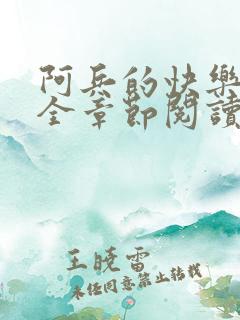 阿兵的快樂
全章節閱讀
王曉雷
未任同意禁止轉載